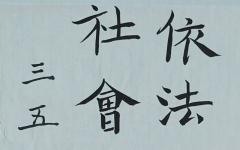 依法
社會
三五